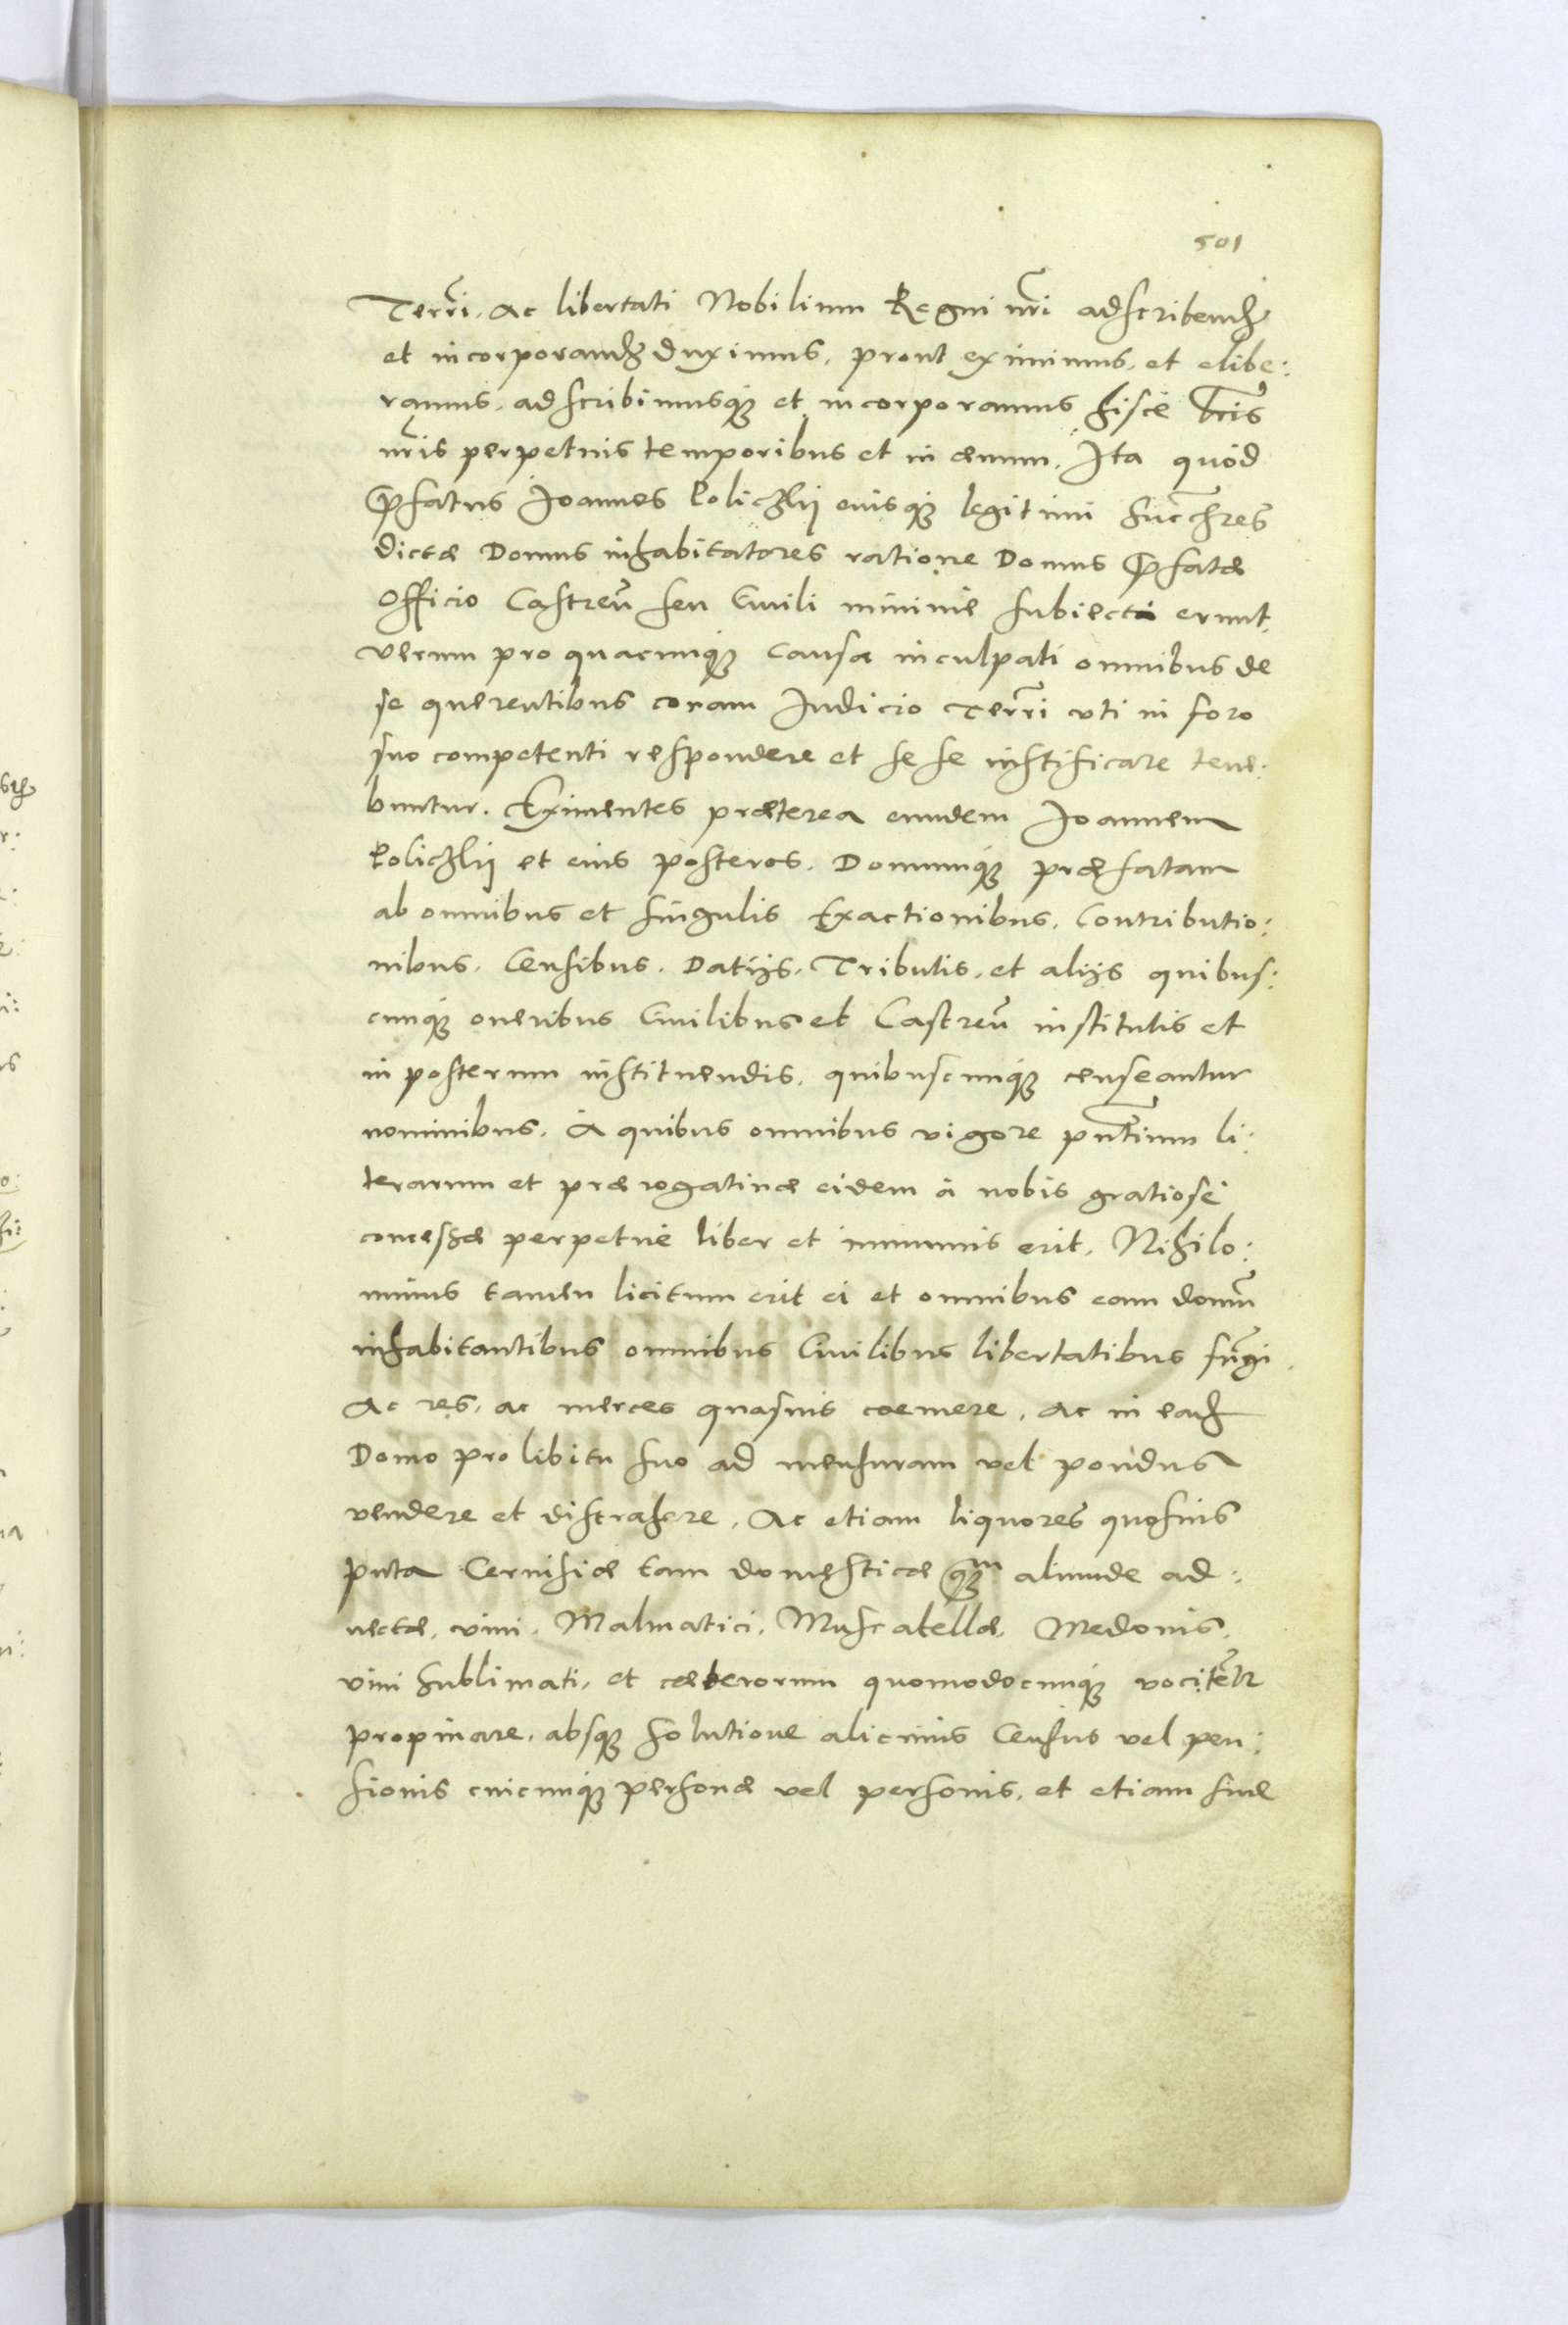 501
Terrī. Ac libertati Nobilium Regni nr̄i adscribend
et incorporand duximus, prout eximimus, et elibe:
ramus, adscribimusq́ et incorporamus hisce Lr̄is
nr̄is perpetuis temporibus et in æuum. Ita quòd
p̄fatus Joannes Policzlij eiusq́ legitimi succh̄res
dictæ Domus inhabitatores ratione Domus p̄fatæ
Officio Castreñ seu Ciuili minimè subiecti erunt,
verum pro quacunq́ causa inculpati omnibus de
se querentibus coram Iudicio Terrī vti in foro
suo competenti respondere et sese iustificare tene:
buntur. Eximentes præterea eundem Joannem
Policzlij et eius posteros. Domumq́ præfatam
ab omnibus et singulis Exactionibus, Contributio:
nibus, Censibus, Datijs, Tributis, et alijs quibus:
cunq́ oneribus Ciuilibus et Castreñ institutis et
in posterum instituendis, quibuscunq́ censeantur
nominibus. A quibus omnibus vigore pn̄tium li:
terarum et prærogatiuæ eidem à nobis gratiosè
concessæ perpetuè liber et immunis erit. Nihilo:
minus tamen licitum erit ei et omnibus eam domū
inhabitantibus omnibus Ciuilibus libertatibus fungi
Ac res, ac merces quasuis coemere, ac in ead
Domo pro libitu suo ad mensuram vel pondus
vendere et distrahere. Ac etiam liquores quosuis
puta Ceruisiæ tam domesticæ q̄m aliunde ad:
uectæ, vini, Malmatici, Muscatellæ, Medonis,
vini sublimati, et cæterorum quomodocunq́ vocitētr
propinare, absq́ solutione alicuius Census vel pen:
sionis cuicunq́ personæ vel personis, et etiam sine